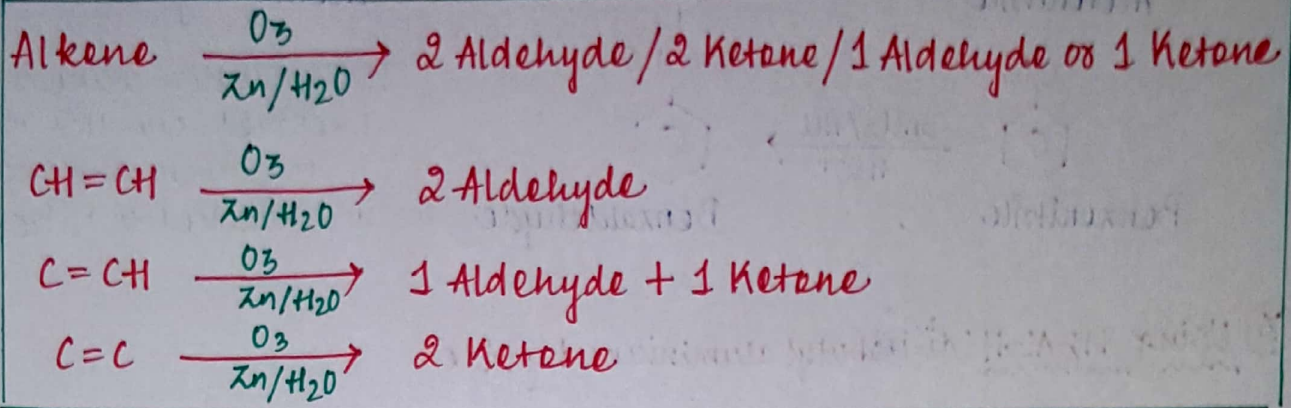 Alkene O3 Zn/H2O → 2 Aldehyde/2 Ketone/1 Aldehyde or 1 Ketone
CH=CH O3 Zn/H2O → 2 Aldehyde
C=CH O3 Zn/H2O → 1 Aldehyde + 1 Ketone
C=C O3 Zn/H2O → 2 Ketone